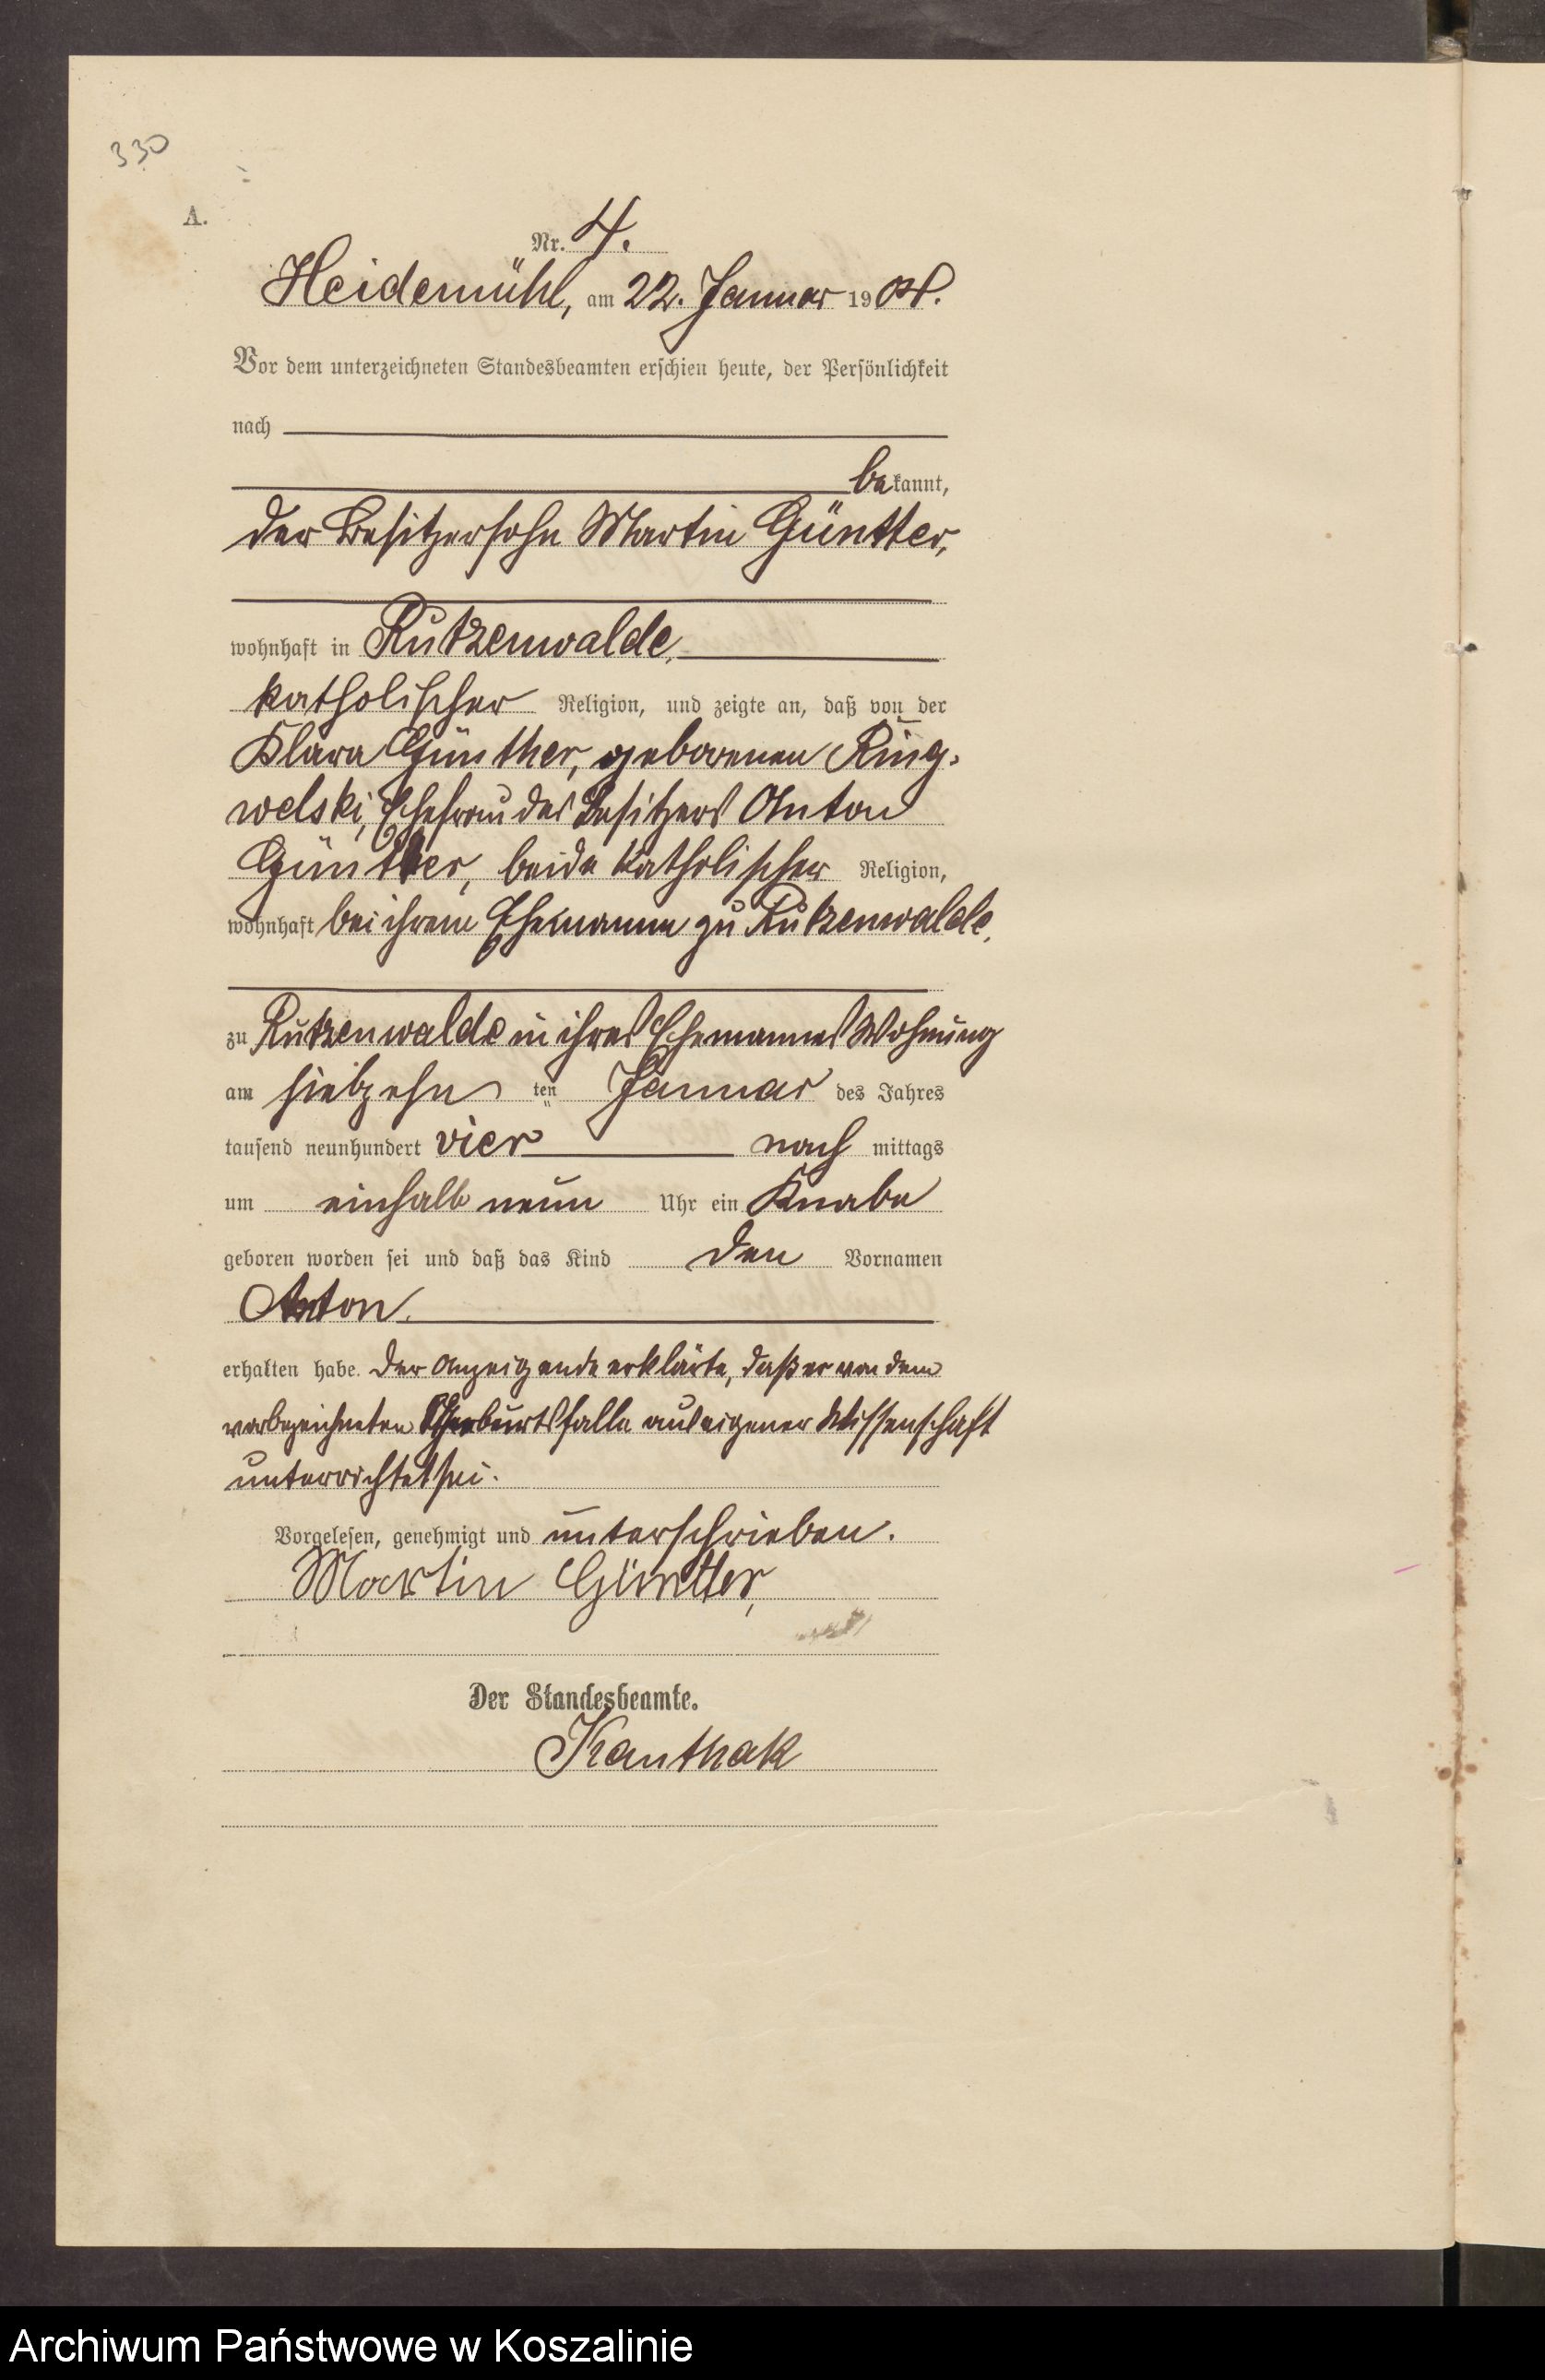 330
A.
Nr. 4.
Heidemühl, am 22. Januar 1904.
Vor dem unterzeichneten Standesbeamten erschien heute, der Persönlichkeit
nach
bekannt,
der Besitzersohn Martin Güntter,
wohnhaft in Rutzenwalde,
katholischer Religion, und zeigte an, daß von der
Klara Günther, geborenen Ring-
welski, Ehefrau des Besitzers Anton
Güntter, beide katholischer Religion,
wohnhaft bei ihrem Ehemanne zu Rutzenwalde,
zu Rutzenwalde in ihres Ehemannes Wohnung
am siebzehn ten Januar des Jahres
tausend neunhundert vier nach mittags
um einhalb neun Uhr ein Knabe
geboren worden sei und daß das Kind den Vornamen
Anton.
erhalten habe. Der Anzeigende erklärte, daß er von dem
vorbezeichneten Geburtsfalle aus eigener Wissenschaft
unterrichtet sei.
Vorgelesen, genehmigt und unterschrieben.
Martin Güntter,
Der Standesbeamte.
Kanthak
Archiwum Państwowe w Koszalinie